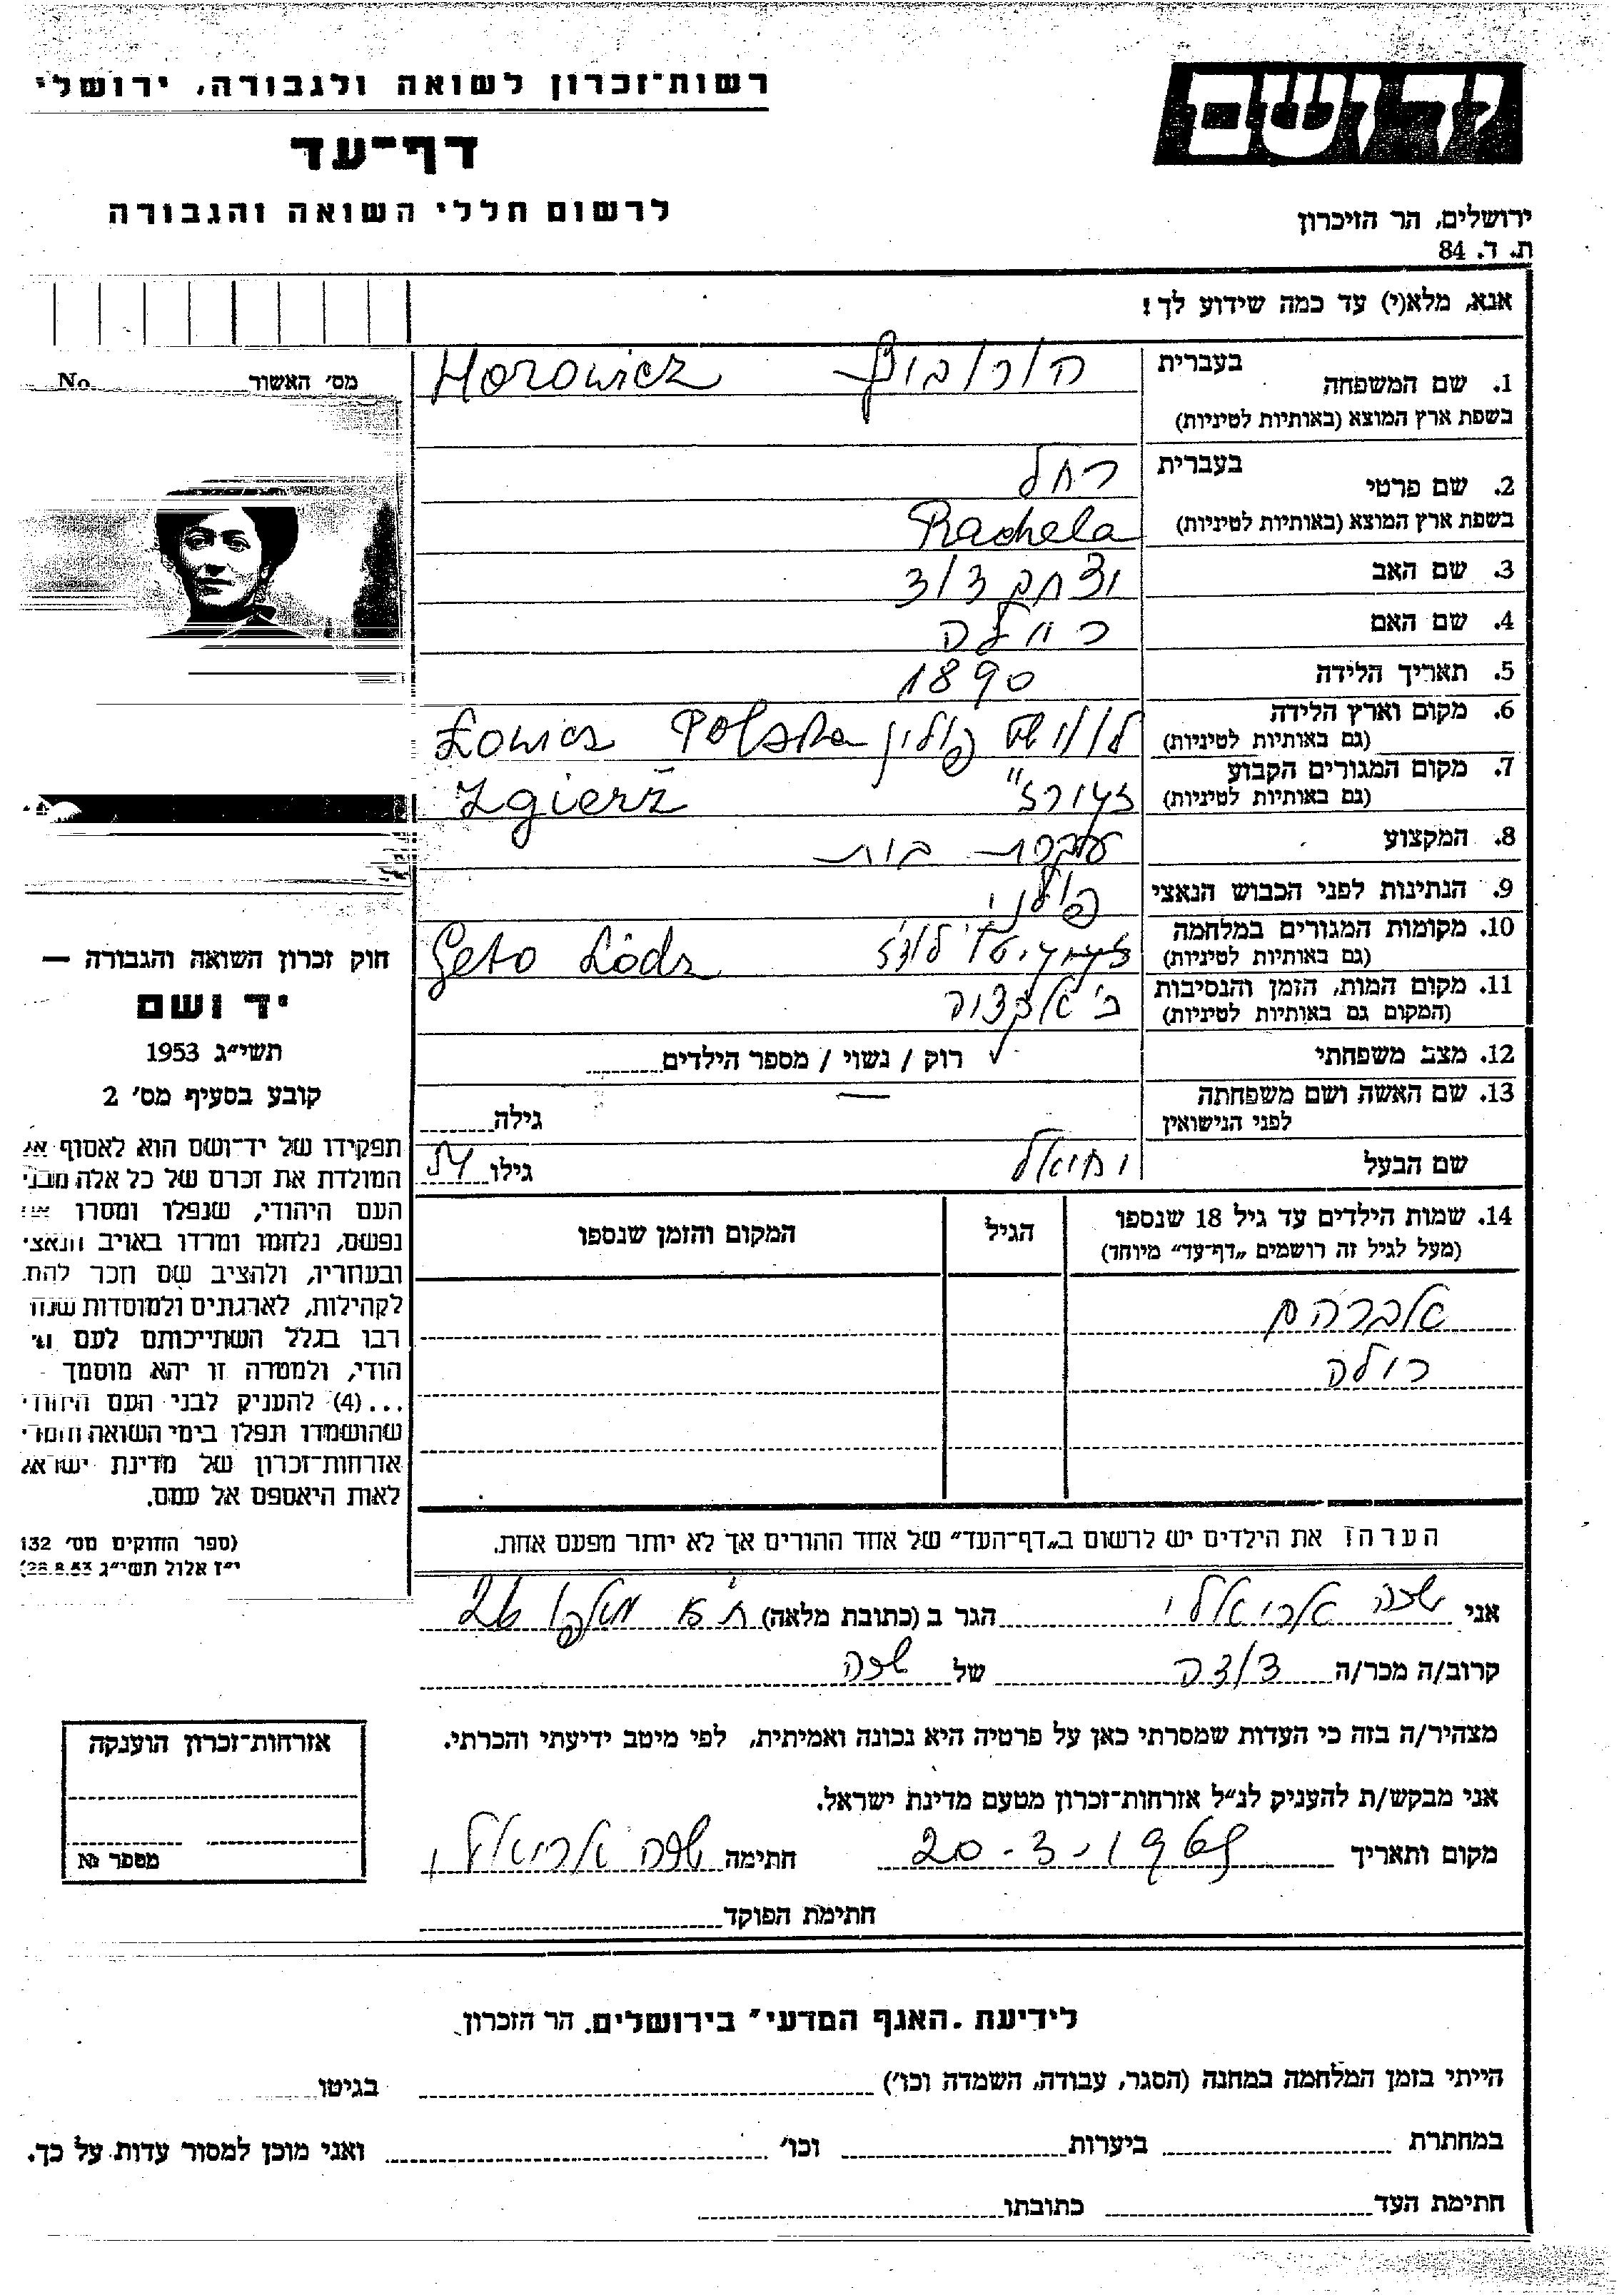 רשות־זכרון לשואה ולגבורה, ירושלי
דף־עד
לרשום חללי השואה והגבורה
יד ושם
ירושלים, הר הזיכרון
ת. ד. 84
אנא, מלא(י) עד כמה שידוע לך!
מס׳ האשור No.
בעברית הורוביץ Horowicz
1. שם המשפחה
בשפת ארץ המוצא (באותיות לטיניות)
בעברית רחל
2. שם פרטי
בשפת ארץ המוצא (באותיות לטיניות) Rachela
3. שם האב יצחק דוד
4. שם האם
5. תאריך הלידה 1890
6. מקום וארץ הלידה
(גם באותיות לטיניות) פולין Łowicz Polska
7. מקום המגורים הקבוע
(גם באותיות לטיניות) Zgierż
8. המקצוע עקרת בית
9. הנתינות לפני הכבוש הנאצי פולני
10. מקומות המגורים במלחמה
(גם באותיות לטיניות) לודז Geto Łódz
11. מקום המות, הזמן והנסיבות
(המקום גם באותיות לטיניות)
12. מצב משפחתי רוק / נשוי / מספר הילדים
13. שם האשה ושם משפחתה
לפני הנישואין — גילה
שם הבעל יחיאל גילו 54
14. שמות הילדים עד גיל 18 שנספו
(מעל לגיל זה רושמים „דף־עד״ מיוחד)
הגיל
המקום והזמן שנספו
אברהם
רולה
הערה: את הילדים יש לרשום ב„דף־העד״ של אחד ההורים אך לא יותר מפעם אחת.
חוק זכרון השואה והגבורה —
יד ושם
תשי״ג 1953
קובע בסעיף מס׳ 2
תפקידו של יד־ושם הוא לאסוף אל
המולדת את זכרם של כל אלה מבני
העם היהודי, שנפלו ומסרו את
נפשם, נלחמו ומרדו באויב הנאצי
ובעוזריו, ולהציב שם וזכר להם,
לקהילות, לארגונים ולמוסדות שנח
רבו בגלל השתייכותם לעם הי
הודי, ולמטרה זו יהא מוסמך -
...(4) להעניק לבני העם היהודי
שהושמדו ונפלו בימי השואה והמרי
אזרחות־זכרון של מדינת ישראל
לאות היאספם אל עמם.
(ספר החוקים מס׳ 132
י״ז אלול תשי״ג 28.8.53)
אני אריאלי הגר ב (כתובת מלאה) ת״א
קרוב/ה מכר/ה דודה של
מצהיר/ה בזה כי העדות שמסרתי כאן על פרטיה היא נכונה ואמיתית, לפי מיטב ידיעתי והכרתי.
אני מבקש/ת להעניק לנ״ל אזרחות־זכרון מטעם מדינת ישראל.
מקום ותאריך 20-3-1965 חתימה אריאלי
חתימת הפוקד
אזרחות־זכרון הוענקה
מספר №
לידיעת „האגף המדעי״ בירושלים, הר הזכרון.
הייתי בזמן המלחמה במחנה (הסגר, עבודה, השמדה וכו׳) בגיטו
במחתרת ביערות וכו׳ ואני מוכן למסור עדות על כך.
חתימת העד כתובתו